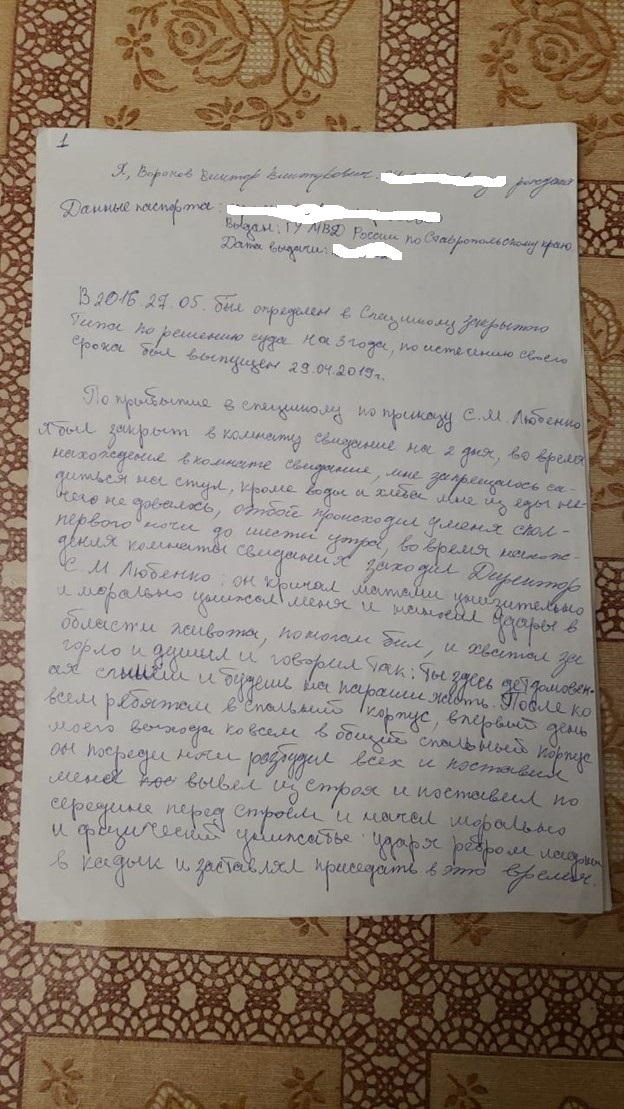 1
Я, Воронов Виктор Викторович. рождения
Данные паспорта:
Выдан: ГУ МВД России по Ставропольскому краю
Дата выдачи:
В 2016.27.05. был определен в Спецшколу закрытого
Типа по решению суда на 3 года, по истечению своего
срока был выпущен 29.04.2019г.
По прибытие в спецшколу по приказу С.М. Любенко
я был закрыт в комнату свидание на 2 дня, во время
нахождение в комнате свидание, мне запрещалось са-
диться на стул, кроме воды и хлеба мне из еды не-
чего не довалось, отбой происходил у меня с пол-
первого ночи до шести утра, во время нахож-
дения комнаты свидания заходил Директор
С.М Любенко: он кричал матами унизительно
и морально унижал меня и наносил удары в
области живота, по ногам бил, и хватал за
горло и душил и говорил так: Ты здесь детдомовен-
ая и будешь на параши жить. После ко
всем ребятам в спальный корпус, впервый день
моего выхода ко всем в общий спальный корпус
он посреди ночи разбудил всех и поставил
меня вывел из строя и поставил по
середине перед строем и начал морально
и физический ударя ребром ладони
в кадык и заставлял приседать в это время.